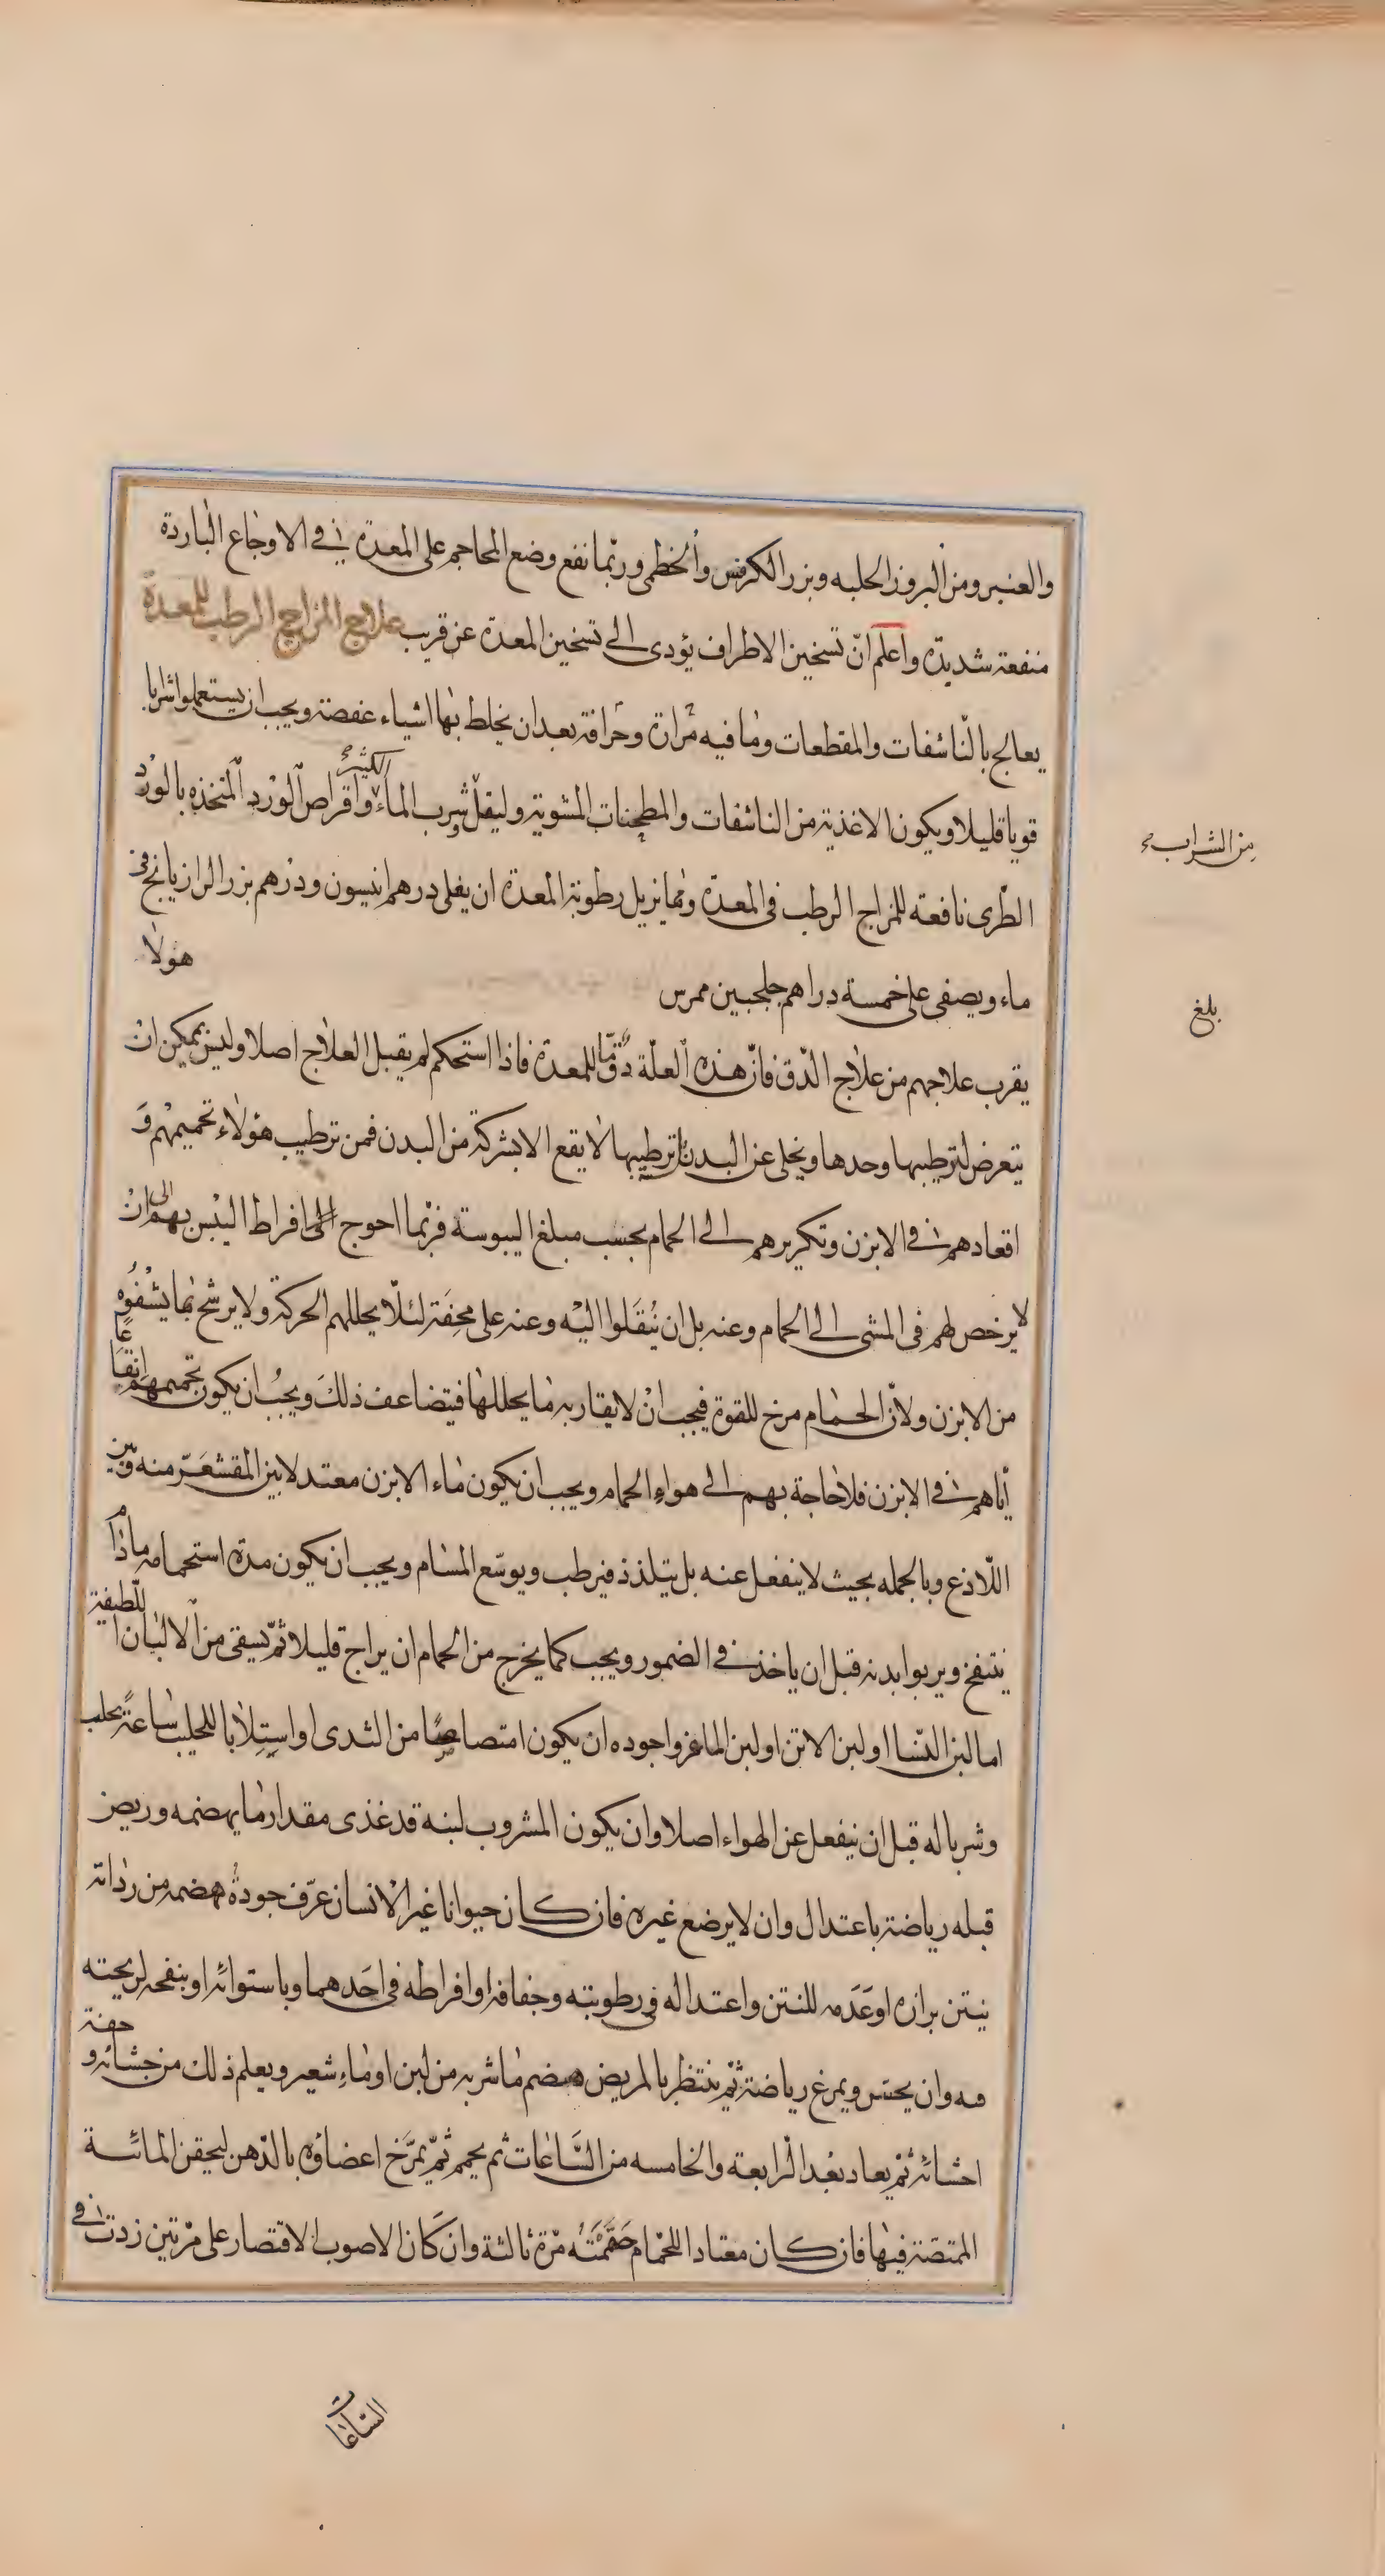 والعنبر ومن البروز الحلبه وبزر الكرفس والخطمى وربّما نفع وضع المحاجم على المعدة في الاوجاع الباردة
منفعة شديدة واعلم انّ تسخين الاطراف يؤدى الى تسخين المعدة عن قريب علاج المزاج الرطب للمعدة
يعالج بالنّاشفات والمقطعات وما فيه مرارة وحرافة بعد ان يخلط بها اشياء عفصة ويجب ان يستعملوا شرابا
قويا قليلا ويكون الاغذية من الناشفات والمطجنات المشوية وليقل شرب الماء واقراص الورد المتخذه بالورد
الكثير
من الشراب
الطّرى نافعة للمزاج الرطب فى المعدة ومما يزيل رطوبة المعدة ان يغلى درهم انيسون ودرهم بزر الرازيانج فى
ماء ويصفى على خمسة دراهم جلجبين ممرس
هولا
بلغ
يقرب علاجهم من علاج الدّق فانّ هذه العلّة دقّ ما للمعدة فاذا استحكم لم يقبل العلاج اصلا وليس يمكن ان
يتعرض لترطيبها وحدها ويخلى عن البدن لان ترطيبها لا يقع الا بشركة من البدن فمن ترطيب هؤلاء تحميمهم و
اقعادهم فى الابزن وتكريرهم الى الحمام بحسب مبلغ اليبوسة فربّما احوج افراط اليبس بهم الى ان
لا يرخص لهم فى المشى الى الحمام وعنه بل ان يُنقَلوا اليه وعنه على محِفَة لئلّا يحللهم الحركة ولا يرشح بما يشفُوه
من الابزن ولانّ الحمام مرخ للقوة فيجب انْ لا يقاربه ما يحللها فيتضاعف ذلك ويجب ان يكون تحميمهم ايقاعا
ايّاهم فى الابزن فلا حاجة بهم الى هواء الحمام ويجب ان يكون ماء الابزن معتدلا بين المقشعَرّ منه وبين
اللّاذع وبالجمله بحيث لا ينفعل عنه بل يتلذذ فيرطب ويوسّع المسام ويجب ان يكون مدة استحمامه ماذام
ينتفخ ويربوا بدنه قبل ان ياخذ فى الضمور ويجب كما يخرج من الحمام ان يراح قليلا ثمّ يسقى من الالبان اللّطيفة
اما لبن النّساا او لبن الاتن او لبن الماعز واجوده ان يكون امتصاصًا من الثدى او استلابا للحليب ساعة يحلب
وشربا له قبل ان ينفعل عن الهواء اصلا وان يكون المشروب لبنه قد غذى مقدار ما يهضمه وريض
قبله رياضة باعتدال وان لا يرضع غيره فان كان حيوانا غير الانسان عرّف جودة هضمه من رداته
بنتن برازه او عَدَمه للنتن واعتداله فى رطوبته وجفافه او افراطه فى احَدهما وباستوائه او بنفحه لريحيته
فيه وان يحسّ ويمرغ رياضة ثمّ ينتظر بالمريض هضم ما شربه من لبن او ماء شعير ويعلم ذلك من جشائه و خفة
احشائه ثمّ يعاد بعْد الرابعة والخامسه من السّاعات ثم يحمم ثمّ يمرَّخ اعضاؤه بالدّهن ليحقن المائسة
الممتصّة فيها فان كان معتادا للحمام حمّمته مرّة ثالثة وان كان الاصوب الاقتصار على مرّتين زدت فى
السّاعات